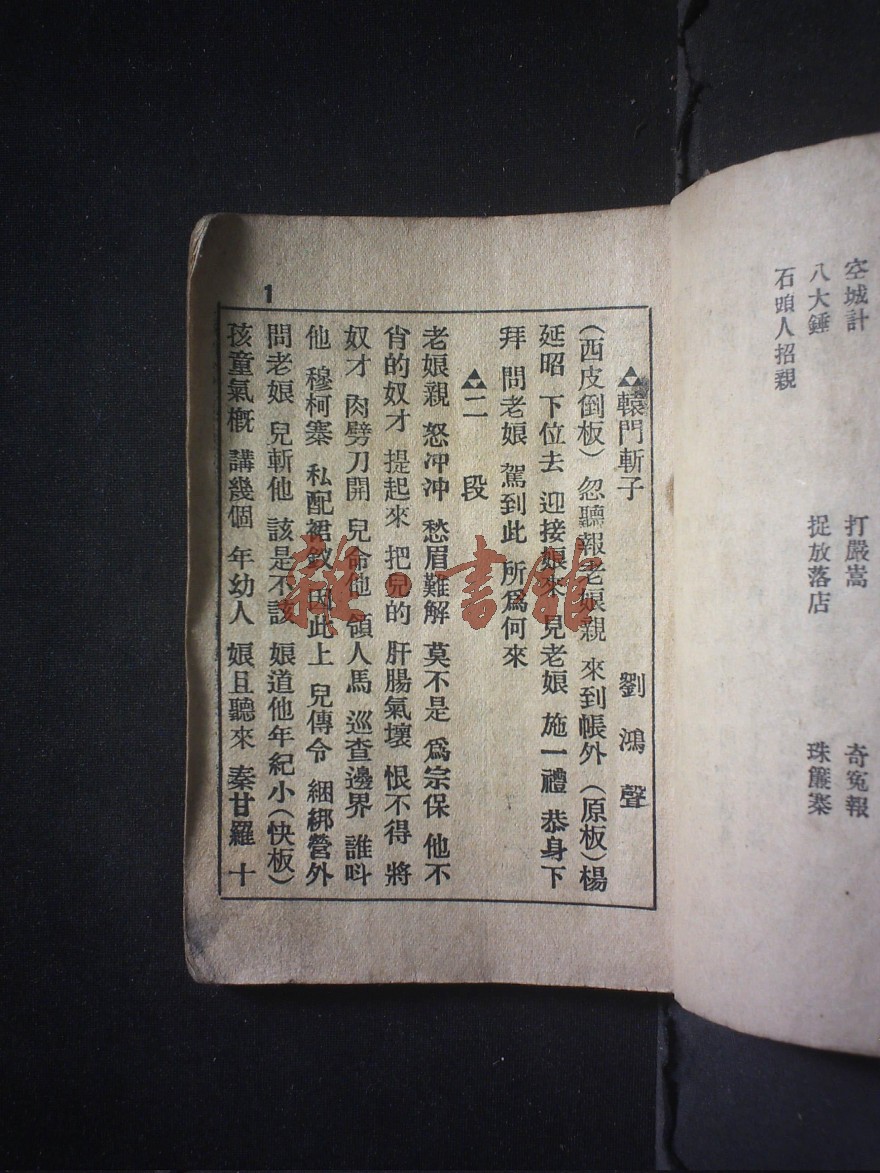 空城計 打嚴嵩 奇冤報
八大錘 捉放落店 珠簾寨
石頭人招親
轅門斬子 劉鴻聲
(西皮倒板) 忽聽報老娘親 來到帳外 (原板)楊
延昭 下位去 迎接娘來 見老娘 施一禮 恭身下
拜 問老娘 駕到此 所爲何來
二 段
老娘親 怒冲冲 愁眉難解 莫不是 爲宗保 他不
肯的奴才 提起來 把兒的 肝腸氣壞 恨不得 將
奴才 肉劈刀開 兒命他 領人馬 巡查邊界 誰呌
他 穆柯寨 私配裙釵 因此上 兒傳令 綑綁營外
問老娘 兒斬他 該是不該 娘道他年紀小(快板)
孩童氣概 講幾個 年幼人 娘且聽來 秦甘羅 十
1
雜·書館